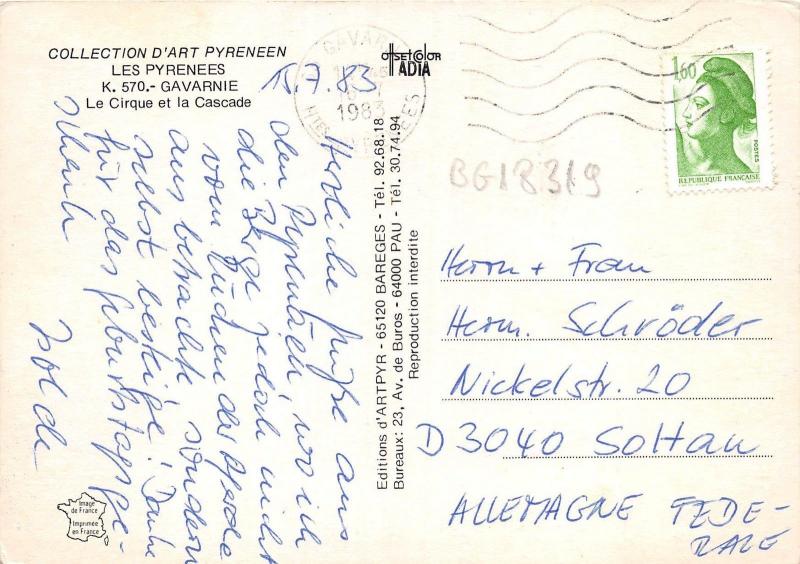 COLLECTION D'ART PYRENEEN
LES PYRENEES
K. 570.- GAVARNIE
Le Cirque et la Cascade
15.7.83
Herzliche Grüße aus
den Pyrenäen wo ich
die Berge jedoch nicht
vom Rücken der Pferde
aus betrachte sondern
selbst besteige! Danke
für das Geburtstagsge-
schenk
Isolde
Image
de France
Imprimée
en France
Editions d'ARTPYR - 65120 BAREGES - Tél. 92.68.18
Bureaux: 23, Av. de Buros - 64000 PAU - Tél. 30.74.94
Reproduction interdite
offset color
ADIA
GAVARNIE
1983
HTES PYRENEES
1,60
POSTES
REPUBLIQUE FRANÇAISE
BG18319
Herrn + Frau
Herm. Schröder
Nickelstr. 20
D 3040 Soltau
ALLEMAGNE FEDE-
RALE